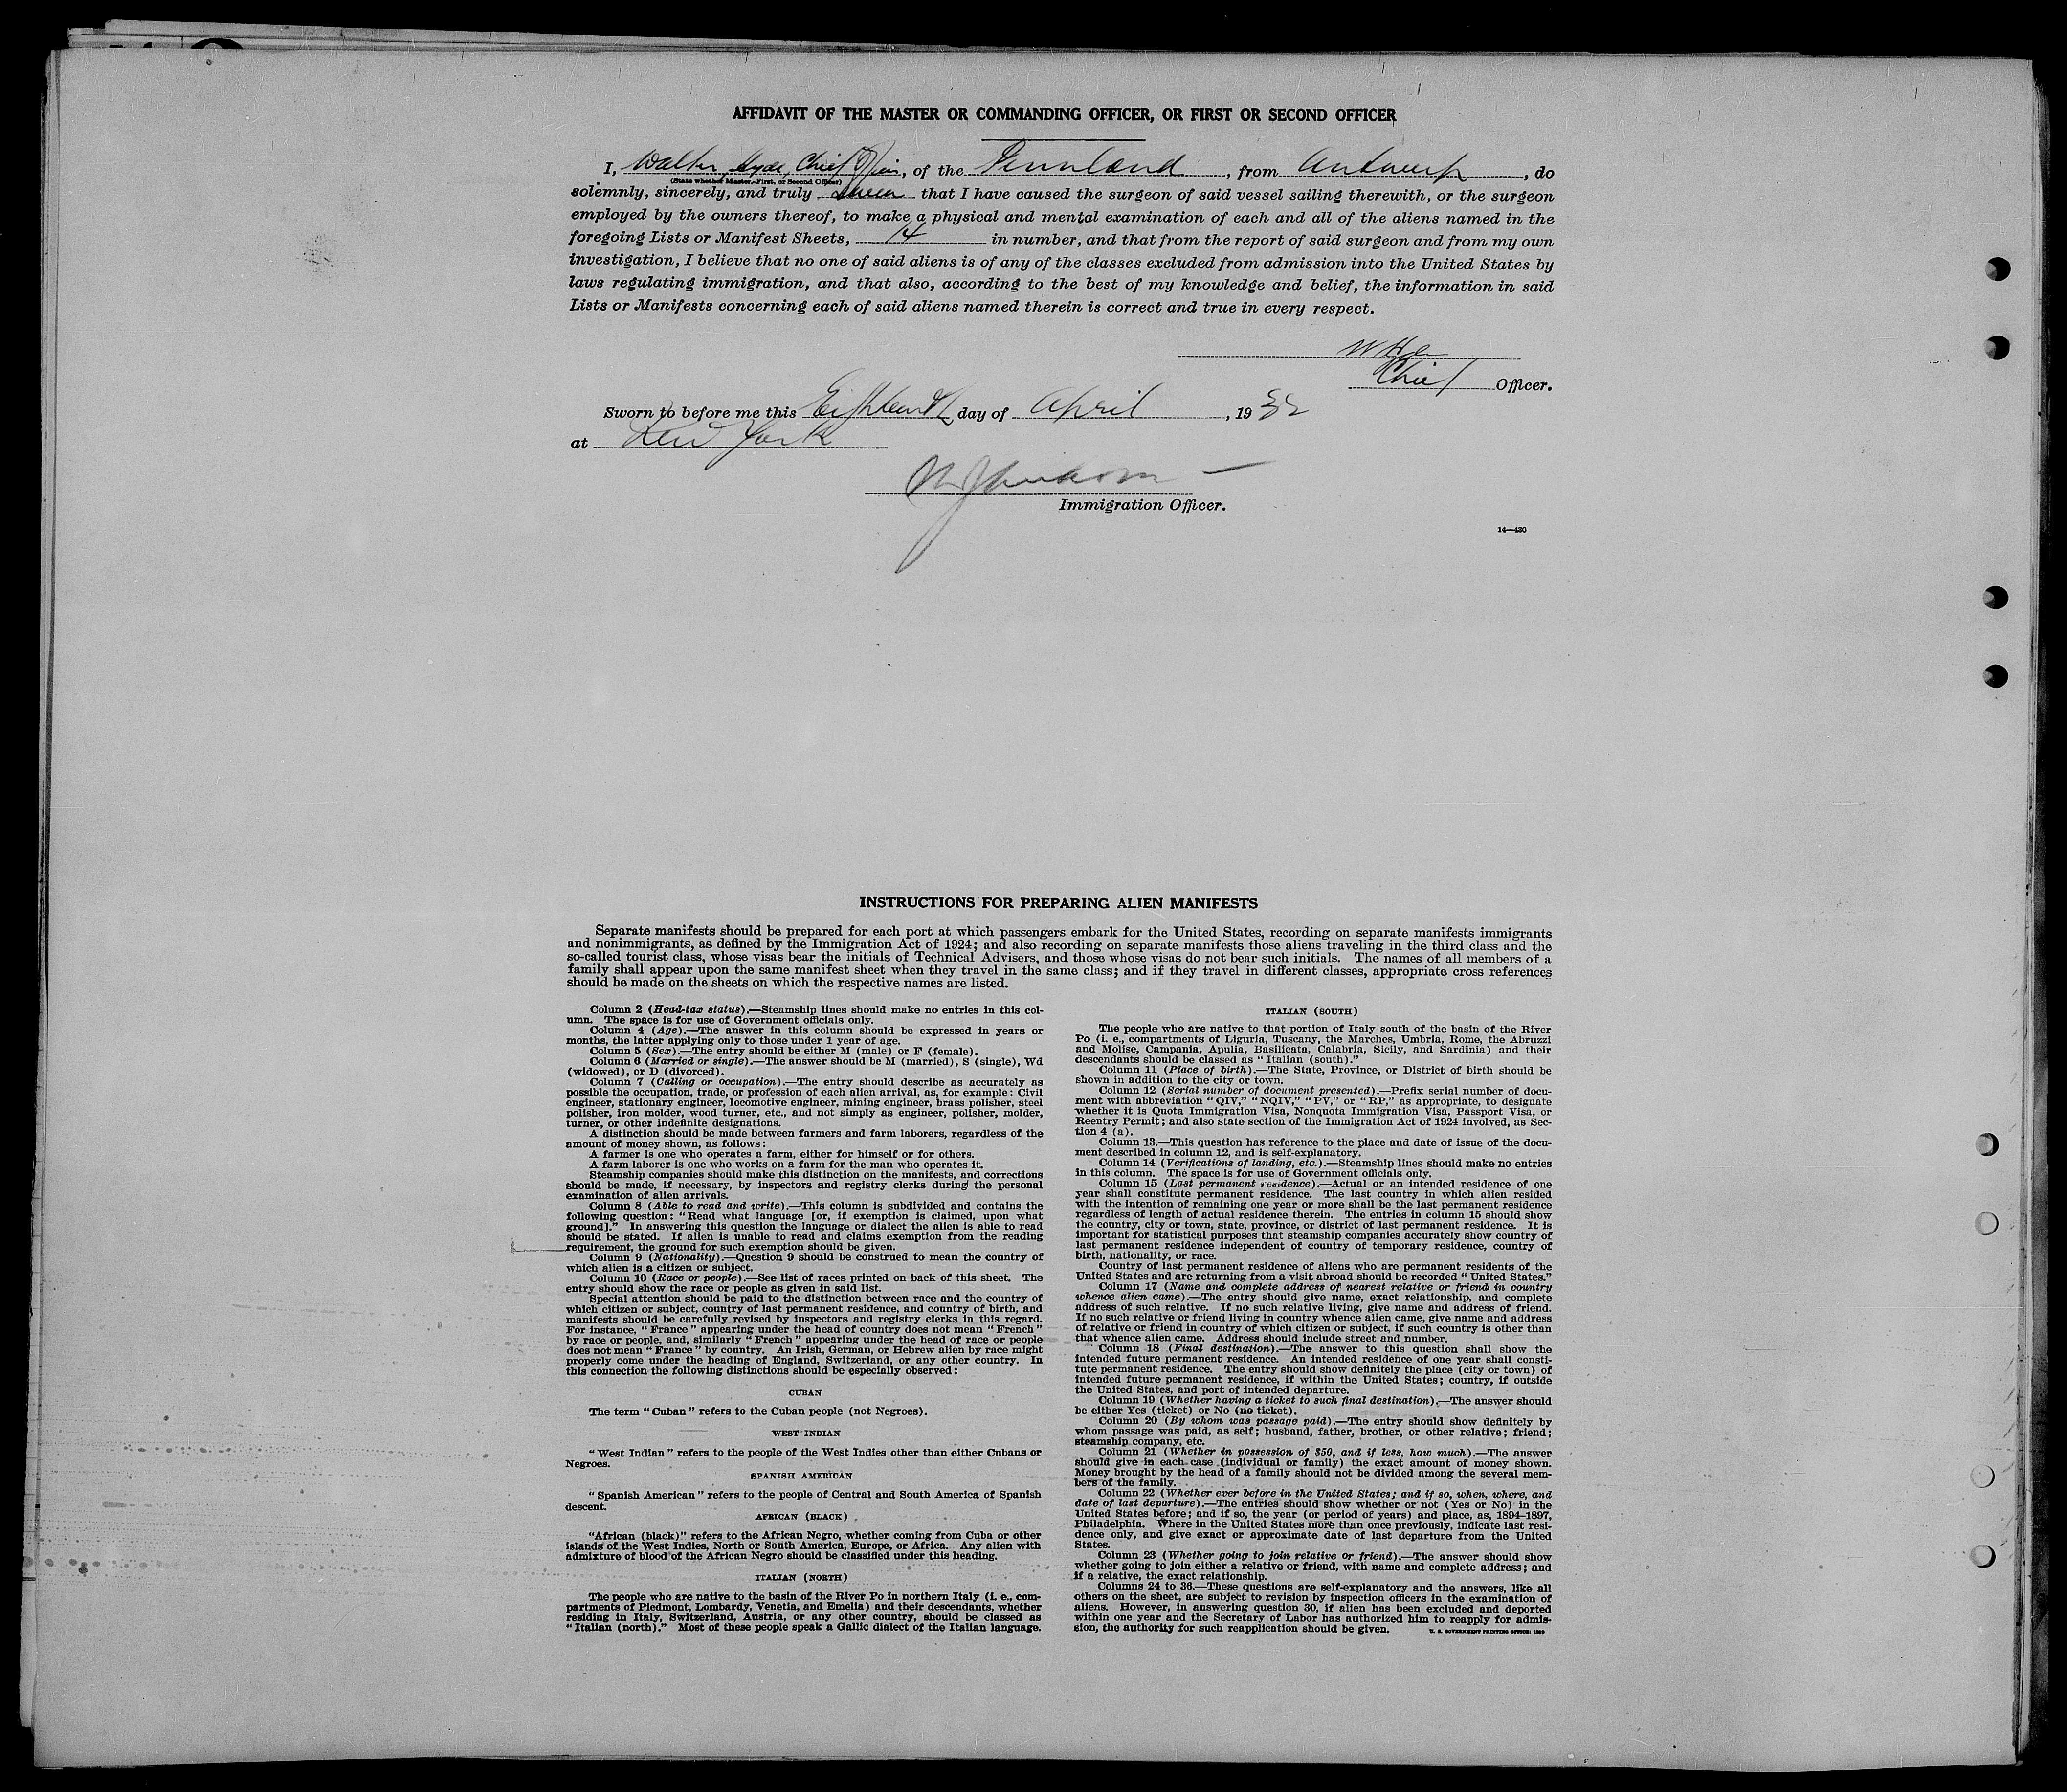 AFFIDAVIT OF THE MASTER OR COMMANDING OFFICER, OR FIRST OR SECOND OFFICER
I, Walter Hyde, Chief Officer, of the Pennland, from Antwerp, do
(State whether Master, First, or Second Officer)
solemnly, sincerely, and truly swear that I have caused the surgeon of said vessel sailing therewith, or the surgeon
employed by the owners thereof, to make a physical and mental examination of each and all of the aliens named in the
foregoing Lists or Manifest Sheets, 14 in number, and that from the report of said surgeon and from my own
investigation, I believe that no one of said aliens is of any of the classes excluded from admission into the United States by
laws regulating immigration, and that also, according to the best of my knowledge and belief, the information in said
Lists or Manifests concerning each of said aliens named therein is correct and true in every respect.
Chief Officer.
Sworn to before me this Eighteenth day of April, 1932
at New York
Immigration Officer.
14—430
INSTRUCTIONS FOR PREPARING ALIEN MANIFESTS
Separate manifests should be prepared for each port at which passengers embark for the United States, recording on separate manifests immigrants
and nonimmigrants, as defined by the Immigration Act of 1924; and also recording on separate manifests those aliens traveling in the third class and the
so-called tourist class, whose visas bear the initials of Technical Advisers, and those whose visas do not bear such initials. The names of all members of a
family shall appear upon the same manifest sheet when they travel in the same class; and if they travel in different classes, appropriate cross references
should be made on the sheets on which the respective names are listed.
Column 2 (Head-tax status).—Steamship lines should make no entries in this col-
umn. The space is for use of Government officials only.
Column 4 (Age).—The answer in this column should be expressed in years or
months, the latter applying only to those under 1 year of age.
Column 5 (Sex).—The entry should be either M (male) or F (female).
Column 6 (Married or single).—The answer should be M (married), S (single), Wd
(widowed), or D (divorced).
Column 7 (Calling or occupation).—The entry should describe as accurately as
possible the occupation, trade, or profession of each alien arrival, as, for example: Civil
engineer, stationary engineer, locomotive engineer, mining engineer, brass polisher, steel
polisher, iron molder, wood turner, etc., and not simply as engineer, polisher, molder,
turner, or other indefinite designations.
A distinction should be made between farmers and farm laborers, regardless of the
amount of money shown, as follows:
A farmer is one who operates a farm, either for himself or for others.
A farm laborer is one who works on a farm for the man who operates it.
Steamship companies should make this distinction on the manifests, and corrections
should be made, if necessary, by inspectors and registry clerks during the personal
examination of alien arrivals.
Column 8 (Able to read and write).—This column is subdivided and contains the
following question: "Read what language [or, if exemption is claimed, upon what
ground]." In answering this question the language or dialect the alien is able to read
should be stated. If alien is unable to read and claims exemption from the reading
requirement, the ground for such exemption should be given.
Column 9 (Nationality).—Question 9 should be construed to mean the country of
which alien is a citizen or subject.
Column 10 (Race or people).—See list of races printed on back of this sheet. The
entry should show the race or people as given in said list.
Special attention should be paid to the distinction between race and the country of
which citizen or subject, country of last permanent residence, and country of birth, and
manifests should be carefully revised by inspectors and registry clerks in this regard.
For instance, "France" appearing under the head of country does not mean "French"
by race or people, and, similarly "French" appearing under the head of race or people
does not mean "France" by country. An Irish, German, or Hebrew alien by race might
properly come under the heading of England, Switzerland, or any other country. In
this connection the following distinctions should be especially observed:
CUBAN
The term "Cuban" refers to the Cuban people (not Negroes).
WEST INDIAN
"West Indian" refers to the people of the West Indies other than either Cubans or
Negroes.
SPANISH AMERICAN
"Spanish American" refers to the people of Central and South America of Spanish
descent.
AFRICAN (BLACK)
"African (black)" refers to the African Negro, whether coming from Cuba or other
islands of the West Indies, North or South America, Europe, or Africa. Any alien with
admixture of blood of the African Negro should be classified under this heading.
ITALIAN (NORTH)
The people who are native to the basin of the River Po in northern Italy (i. e., com-
partments of Piedmont, Lombardy, Venetia, and Emelia) and their descendants, whether
residing in Italy, Switzerland, Austria, or any other country, should be classed as
"Italian (north)." Most of these people speak a Gallic dialect of the Italian language.
ITALIAN (SOUTH)
The people who are native to that portion of Italy south of the basin of the River
Po (i. e., compartments of Liguria, Tuscany, the Marches, Umbria, Rome, the Abruzzi
and Molise, Campania, Apulia, Basilicata, Calabria, Sicily, and Sardinia) and their
descendants should be classed as "Italian (south)."
Column 11 (Place of birth).—The State, Province, or District of birth should be
shown in addition to the city or town.
Column 12 (Serial number of document presented).—Prefix serial number of docu-
ment with abbreviation "QIV," "NQIV," "PV," or "RP," as appropriate, to designate
whether it is Quota Immigration Visa, Nonquota Immigration Visa, Passport Visa, or
Reentry Permit; and also state section of the Immigration Act of 1924 involved, as Sec-
tion 4 (a).
Column 13.—This question has reference to the place and date of issue of the docu-
ment described in column 12, and is self-explanatory.
Column 14 (Verifications of landing, etc.).—Steamship lines should make no entries
in this column. The space is for use of Government officials only.
Column 15 (Last permanent residence).—Actual or an intended residence of one
year shall constitute permanent residence. The last country in which alien resided
with the intention of remaining one year or more shall be the last permanent residence
regardless of length of actual residence therein. The entries in column 15 should show
the country, city or town, state, province, or district of last permanent residence. It is
important for statistical purposes that steamship companies accurately show country of
last permanent residence independent of country of temporary residence, country of
birth, nationality, or race.
Country of last permanent residence of aliens who are permanent residents of the
United States and are returning from a visit abroad should be recorded "United States."
Column 17 (Name and complete address of nearest relative or friend in country
whence alien came).—The entry should give name, exact relationship, and complete
address of such relative. If no such relative living, give name and address of friend.
If no such relative or friend living in country whence alien came, give name and address
of relative or friend in country of which citizen or subject, if such country is other than
that whence alien came. Address should include street and number.
Column 18 (Final destination).—The answer to this question shall show the
intended future permanent residence. An intended residence of one year shall consti-
tute permanent residence. The entry should show definitely the place (city or town) of
intended future permanent residence, if within the United States; country, if outside
the United States, and port of intended departure.
Column 19 (Whether having a ticket to such final destination).—The answer should
be either Yes (ticket) or No (no ticket).
Column 20 (By whom was passage paid).—The entry should show definitely by
whom passage was paid, as self; husband, father, brother, or other relative; friend;
steamship company, etc.
Column 21 (Whether in possession of $50, and if less, how much).—The answer
should give in each case (individual or family) the exact amount of money shown.
Money brought by the head of a family should not be divided among the several mem-
bers of the family.
Column 22 (Whether ever before in the United States; and if so, when, where, and
date of last departure).—The entries should show whether or not (Yes or No) in the
United States before; and if so, the year (or period of years) and place, as, 1894–1897,
Philadelphia. Where in the United States more than once previously, indicate last resi-
dence only, and give exact or approximate date of last departure from the United
States.
Column 23 (Whether going to join relative or friend).—The answer should show
whether going to join either a relative or friend, with name and complete address; and
if a relative, the exact relationship.
Columns 24 to 36.—These questions are self-explanatory and the answers, like all
others on the sheet, are subject to revision by inspection officers in the examination of
aliens. However, in answering question 30, if alien has been excluded and deported
within one year and the Secretary of Labor has authorized him to reapply for admis-
sion, the authority for such reapplication should be given.
U. S. GOVERNMENT PRINTING OFFICE: